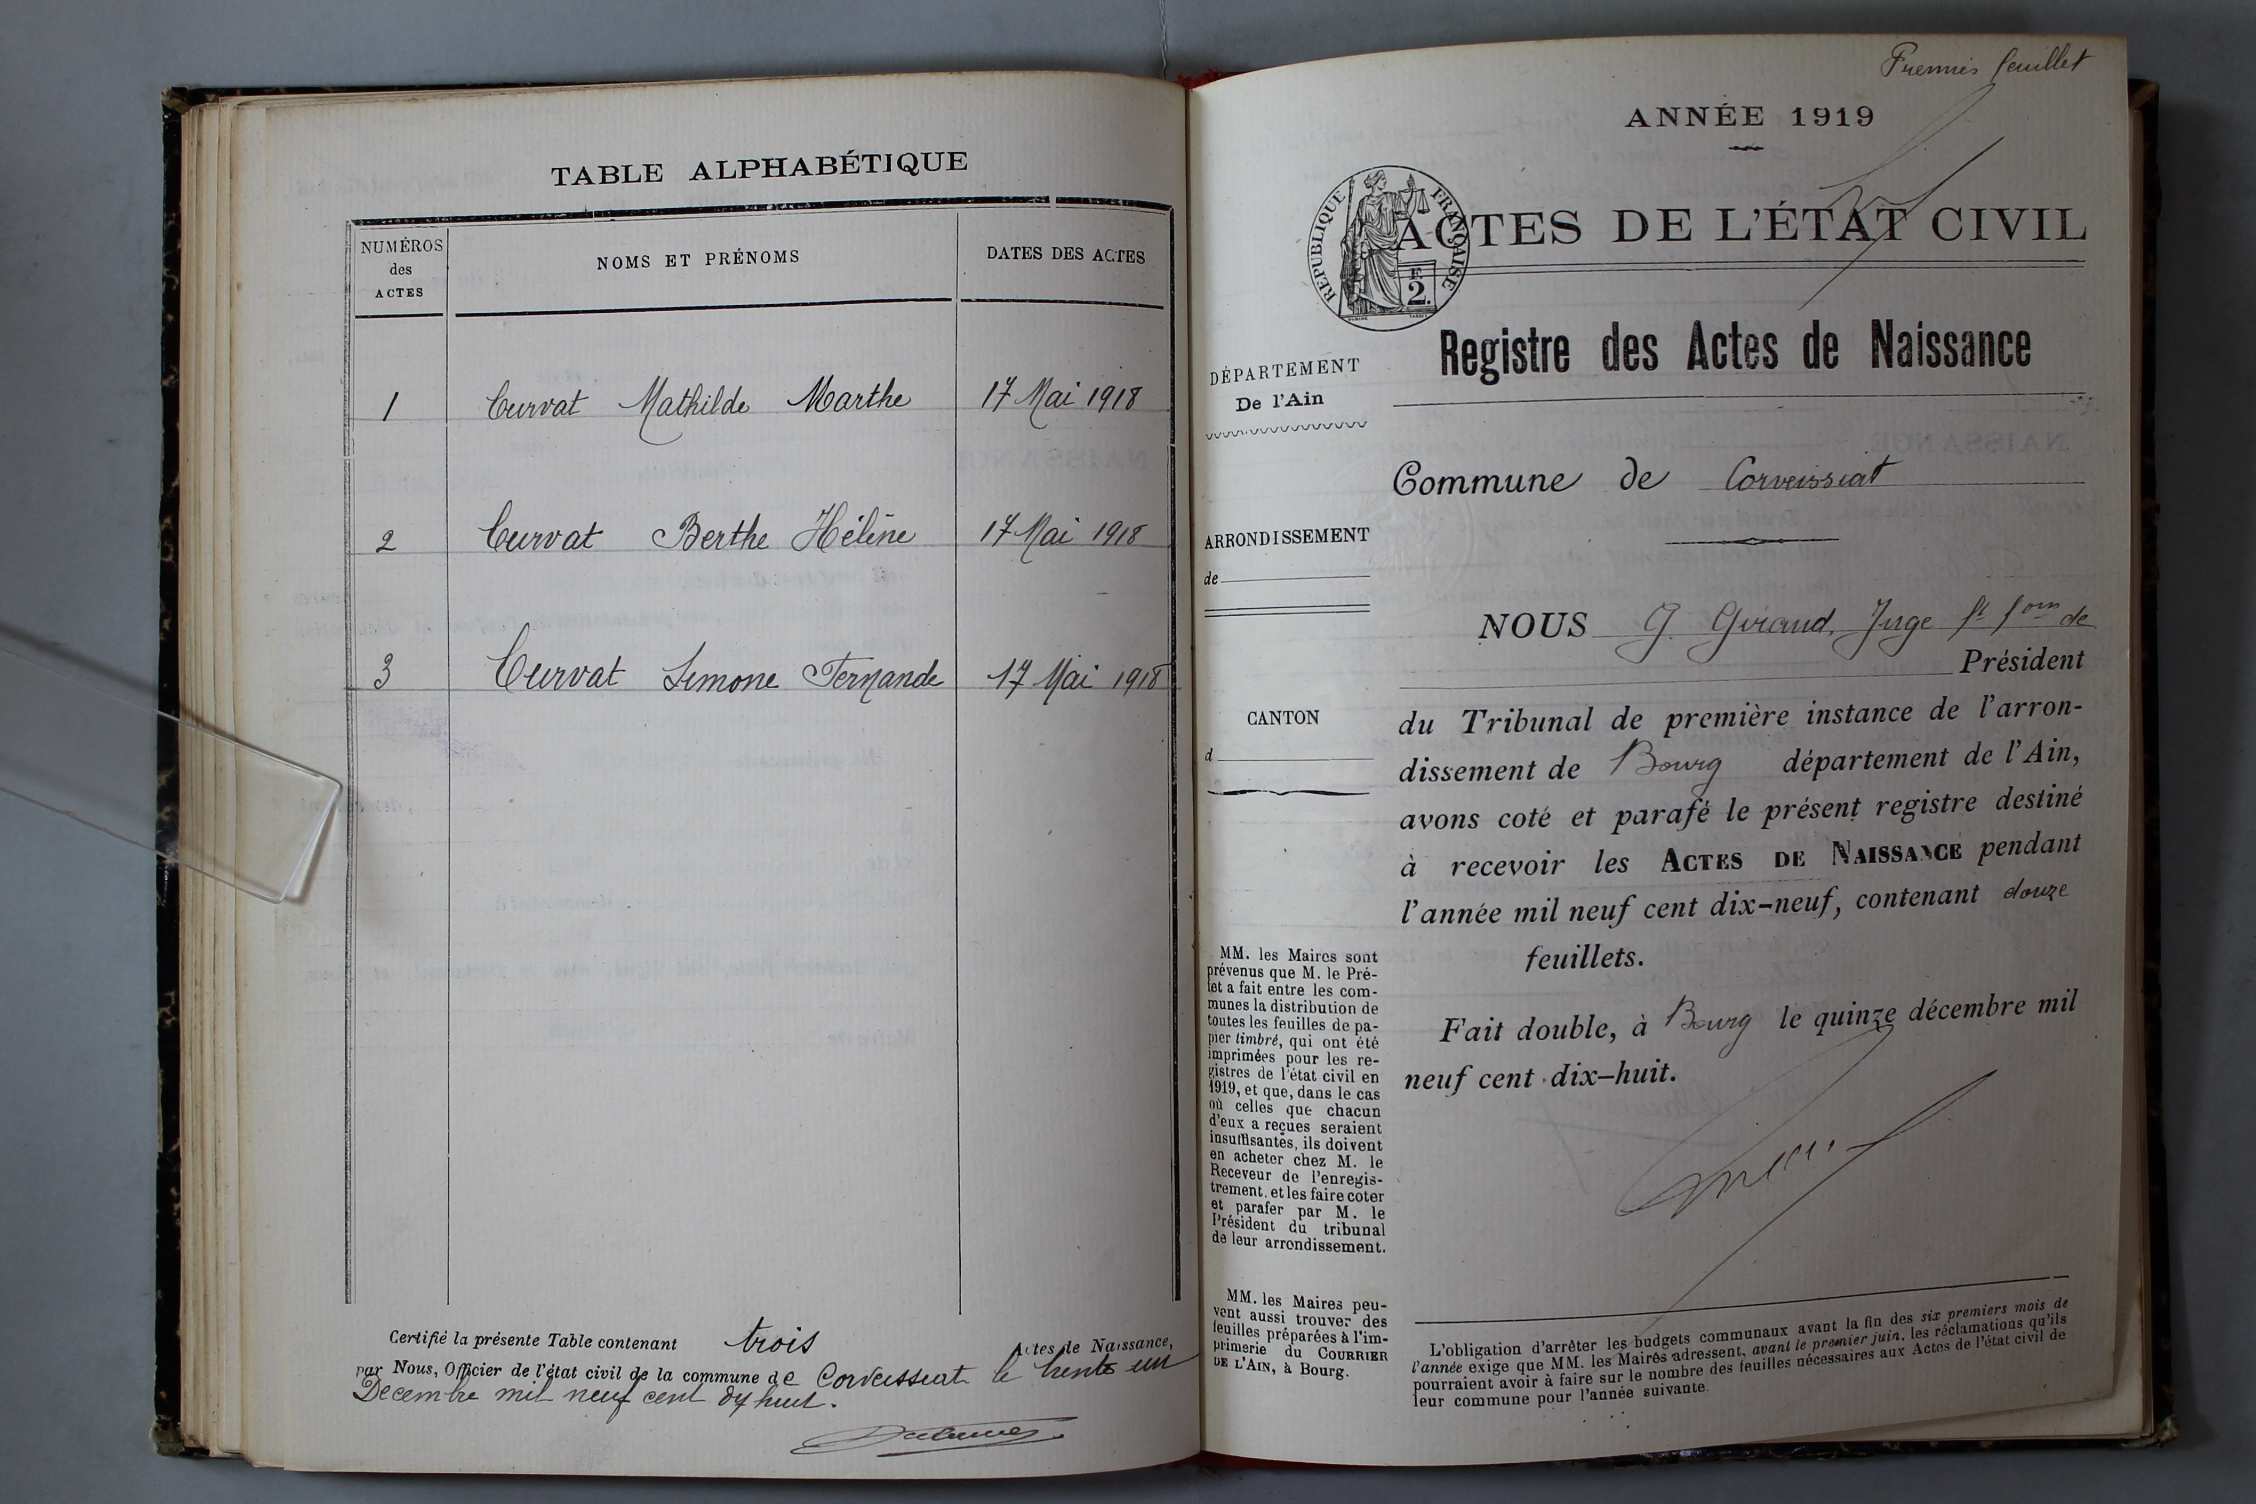 TABLE ALPHABÉTIQUE
NUMÉROS
des
ACTES
NOMS ET PRÉNOMS
DATES DES ACTES
1 Curvat Mathilde Marthe 17 Mai 1918
2 Curvat Berthe Hélène 17 Mai 1918
3 Curvat Simone Fernande 17 Mai 1918
Certifié la présente Table contenant trois Actes de Naissance,
par Nous, Officier de l'état civil de la commune de Corveissiat le trente un
Décembre mil neuf cent dix huit.
Premier feuillet
ANNÉE 1919
RÉPUBLIQUE FRANÇAISE
F.
2.
ACTES DE L'ÉTAT CIVIL
Registre des Actes de Naissance
DÉPARTEMENT
De l'Ain
Commune de Corveissiat
ARRONDISSEMENT
de
CANTON
d
NOUS G. Giraud, Juge ft fom de
Président
du Tribunal de première instance de l'arron-
dissement de Bourg département de l'Ain,
avons coté et parafé le présent registre destiné
à recevoir les ACTES DE NAISSANCE pendant
l'année mil neuf cent dix-neuf, contenant douze
feuillets.
Fait double, à Bourg le quinze décembre mil
neuf cent dix-huit.
MM. les Maires sont
prévenus que M. le Pré-
fet a fait entre les com-
munes la distribution de
toutes les feuilles de pa-
pier timbré, qui ont été
imprimées pour les re-
gistres de l'état civil en
1919, et que, dans le cas
où celles que chacun
d'eux a reçues seraient
insuffisantes, ils doivent
en acheter chez M. le
Receveur de l'enregis-
trement, et les faire coter
et parafer par M. le
Président du tribunal
de leur arrondissement.
MM. les Maires peu-
vent aussi trouver des
feuilles préparées à l'im-
primerie du COURRIER
DE L'AIN, à Bourg.
L'obligation d'arrêter les budgets communaux avant la fin des six premiers mois de
l'année exige que MM. les Maires adressent, avant le premier juin, les réclamations qu'ils
pourraient avoir à faire sur le nombre des feuilles nécessaires aux Actes de l'état civil de
leur commune pour l'année suivante.